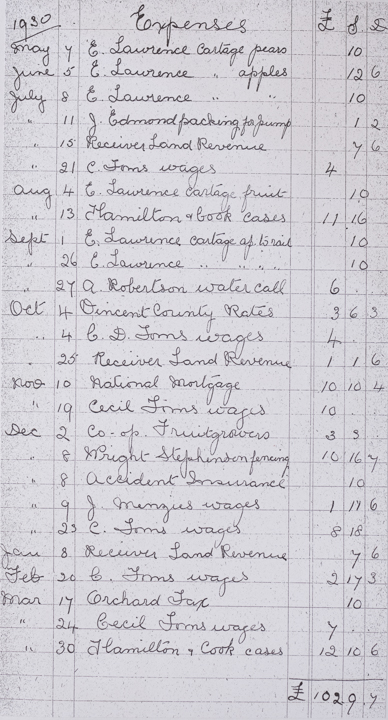 1930 Expenses £ S D
May 7 E. Lawrence Cartage pears 10
June 5 E. Lawrence " apples 12 6
July 8 E. Lawrence " " 10
" 11 J. Edmond packing for pump 1 2
" 15 Receiver Land Revenue 7 6
" 21 C. Toms wages 4
Aug 4 E. Lawrence Cartage fruit 10
" 13 Hamilton & Cook cases 11 16
Sept 1 E. Lawrence Cartage ap. to rail 10
" 26 E. Lawrence " " " " 10
" 27 A. Robertson water call 6
Oct 4 Vincent County Rates 3 6 3
" 4 C. D. Toms wages 4
" 25 Receiver Land Revenue 1 1 6
Nov 10 National Mortgage 10 10 4
" 19 Cecil Toms wages 10
Dec 2 Co-op. Fruitgrovers 3 3
" 8 Wright Stephenson fencing 10 16 7
" 8 Accident Insurance 10
" 9 J. Menzies wages 1 6
" 23 C. Toms wages 8 18
Jan 8 Receiver Land Revenue 7 6
Feb 20 C. Toms wages 2 17 3
Mar 17 Orchard Tax 10
" 24 Cecil Toms wages 7
" 30 Hamilton & Cook cases 12 10 6
£ 102 9 7